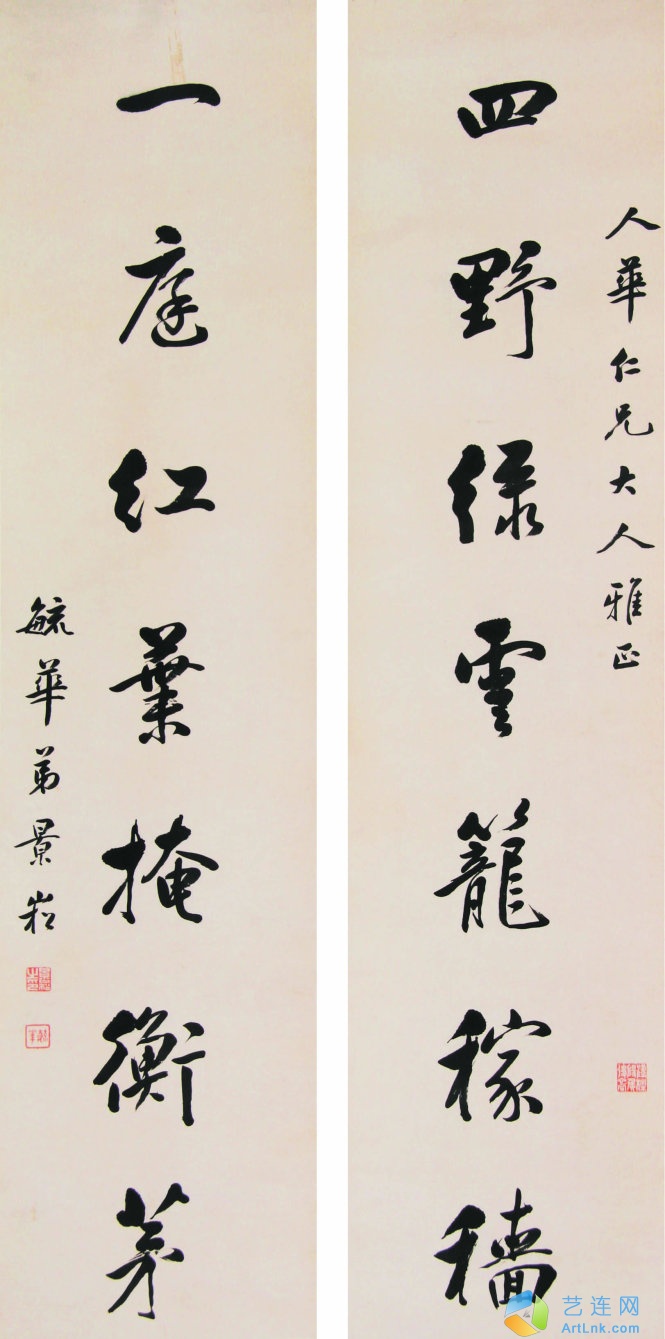 人華仁兄大人雅正
四野緑雲籠稼穡
一庭紅葉掩衡茅
毓華弟景崧
艺连网
ArtLnk.com